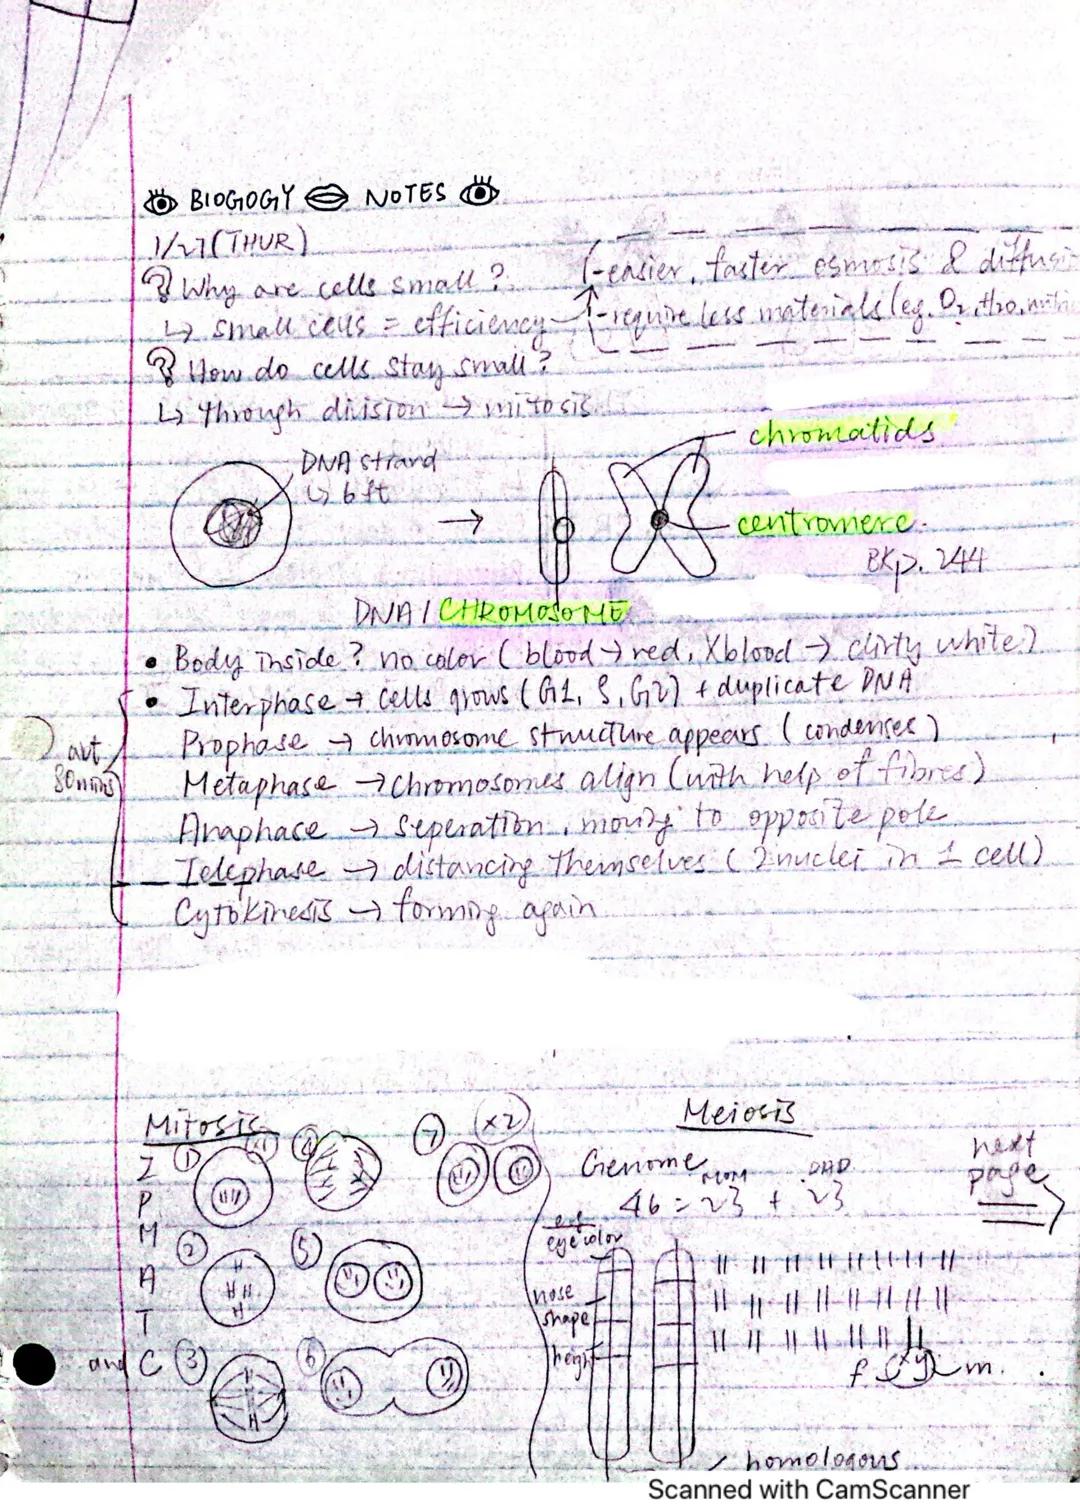 BIOGOGY NOTES
1/27(THUR)
? Why are cells small?
↳ small cells = efficiency
-easier, faster osmosis & diffusi
-require less materials (eg. O2, H2O, nutrie
? How do cells stay small?
↳ through division → mitosis
DNA strand
↳ 6ft
→
chromatids
centromere.
BKp. 244
DNA / CHROMOSOME
• Body inside? no color (blood → red, Xblood → dirty white)
• Interphase → cells grows (G1, S, G2) + duplicate DNA
Prophase → chromosome structure appears (condenses)
abt
80mins
Metaphase → chromosomes align (with help of fibres)
Anaphase → seperation, moving to opposite pole
Telephase → distancing themselves (2nuclei in 1 cell)
Cytokinesis → forming again
Mitosis
I
P
M
A
T
and C
① (x1)
②
③
④
⑤
⑥
⑦ (x2)
Meiosis
Genome
MOM DAD
46 = 23 + 23
next
page
eyecolor
nose
shape
height
f xy m.
homologous
Scanned with CamScanner